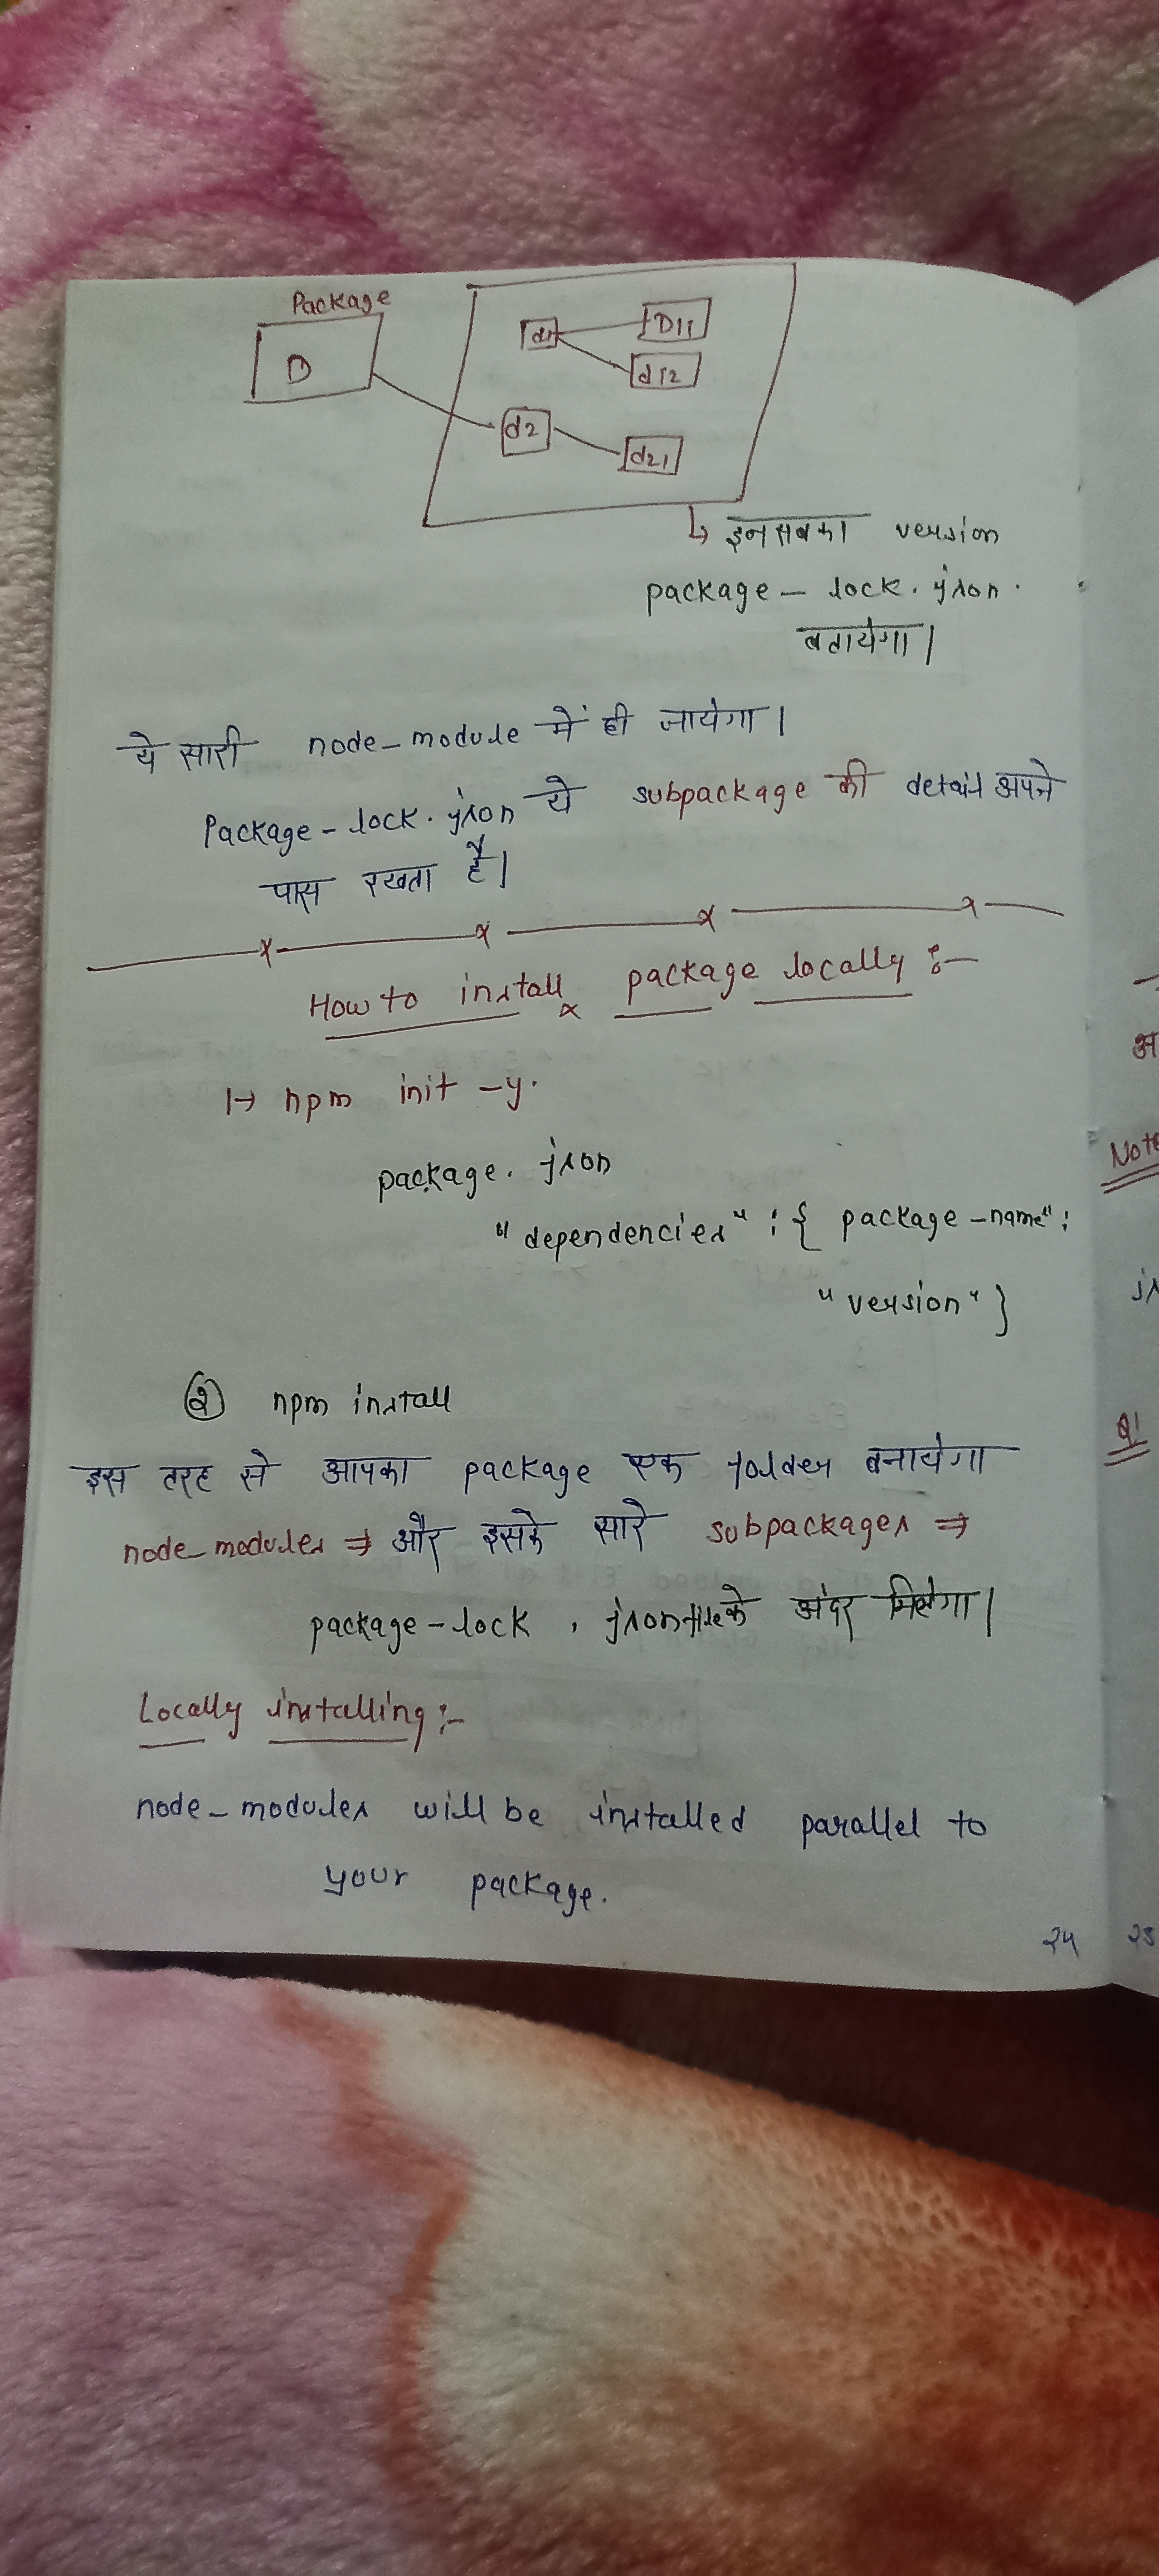 Package
D
d1
D11
d12
d2
d21
↳ इनसबका version
package - lock.json.
बतायेगा।
ये सारी node-module में ही जायेगा।
Package-lock.json ये subpackage की detail अपने
पास रखता है।
How to install package locally :-
1→ npm init -y.
package.json
"dependencies" : { package-name" :
"version" }
② npm install
इस तरह से आपका package एक folder बनायेगा
node-modules ⇒ और इसके सारे subpackages ⇒
package-lock . json file के अंदर मिलेगा।
Locally installing :-
node-modules will be installed parallel to
your package.
24
25
अ
Note
Q1